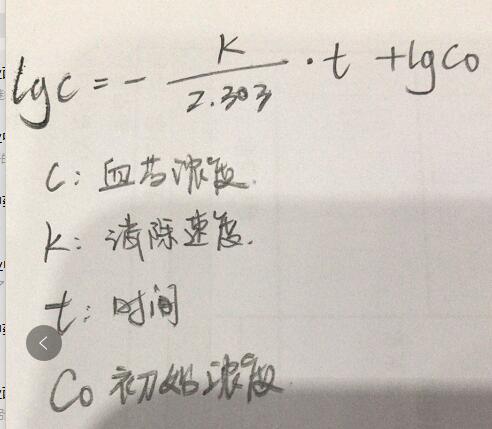 lgC = - K/2.303 · t + lgC₀
C: 血药浓度.
K: 消除速度.
t: 时间
C₀ 初始浓度